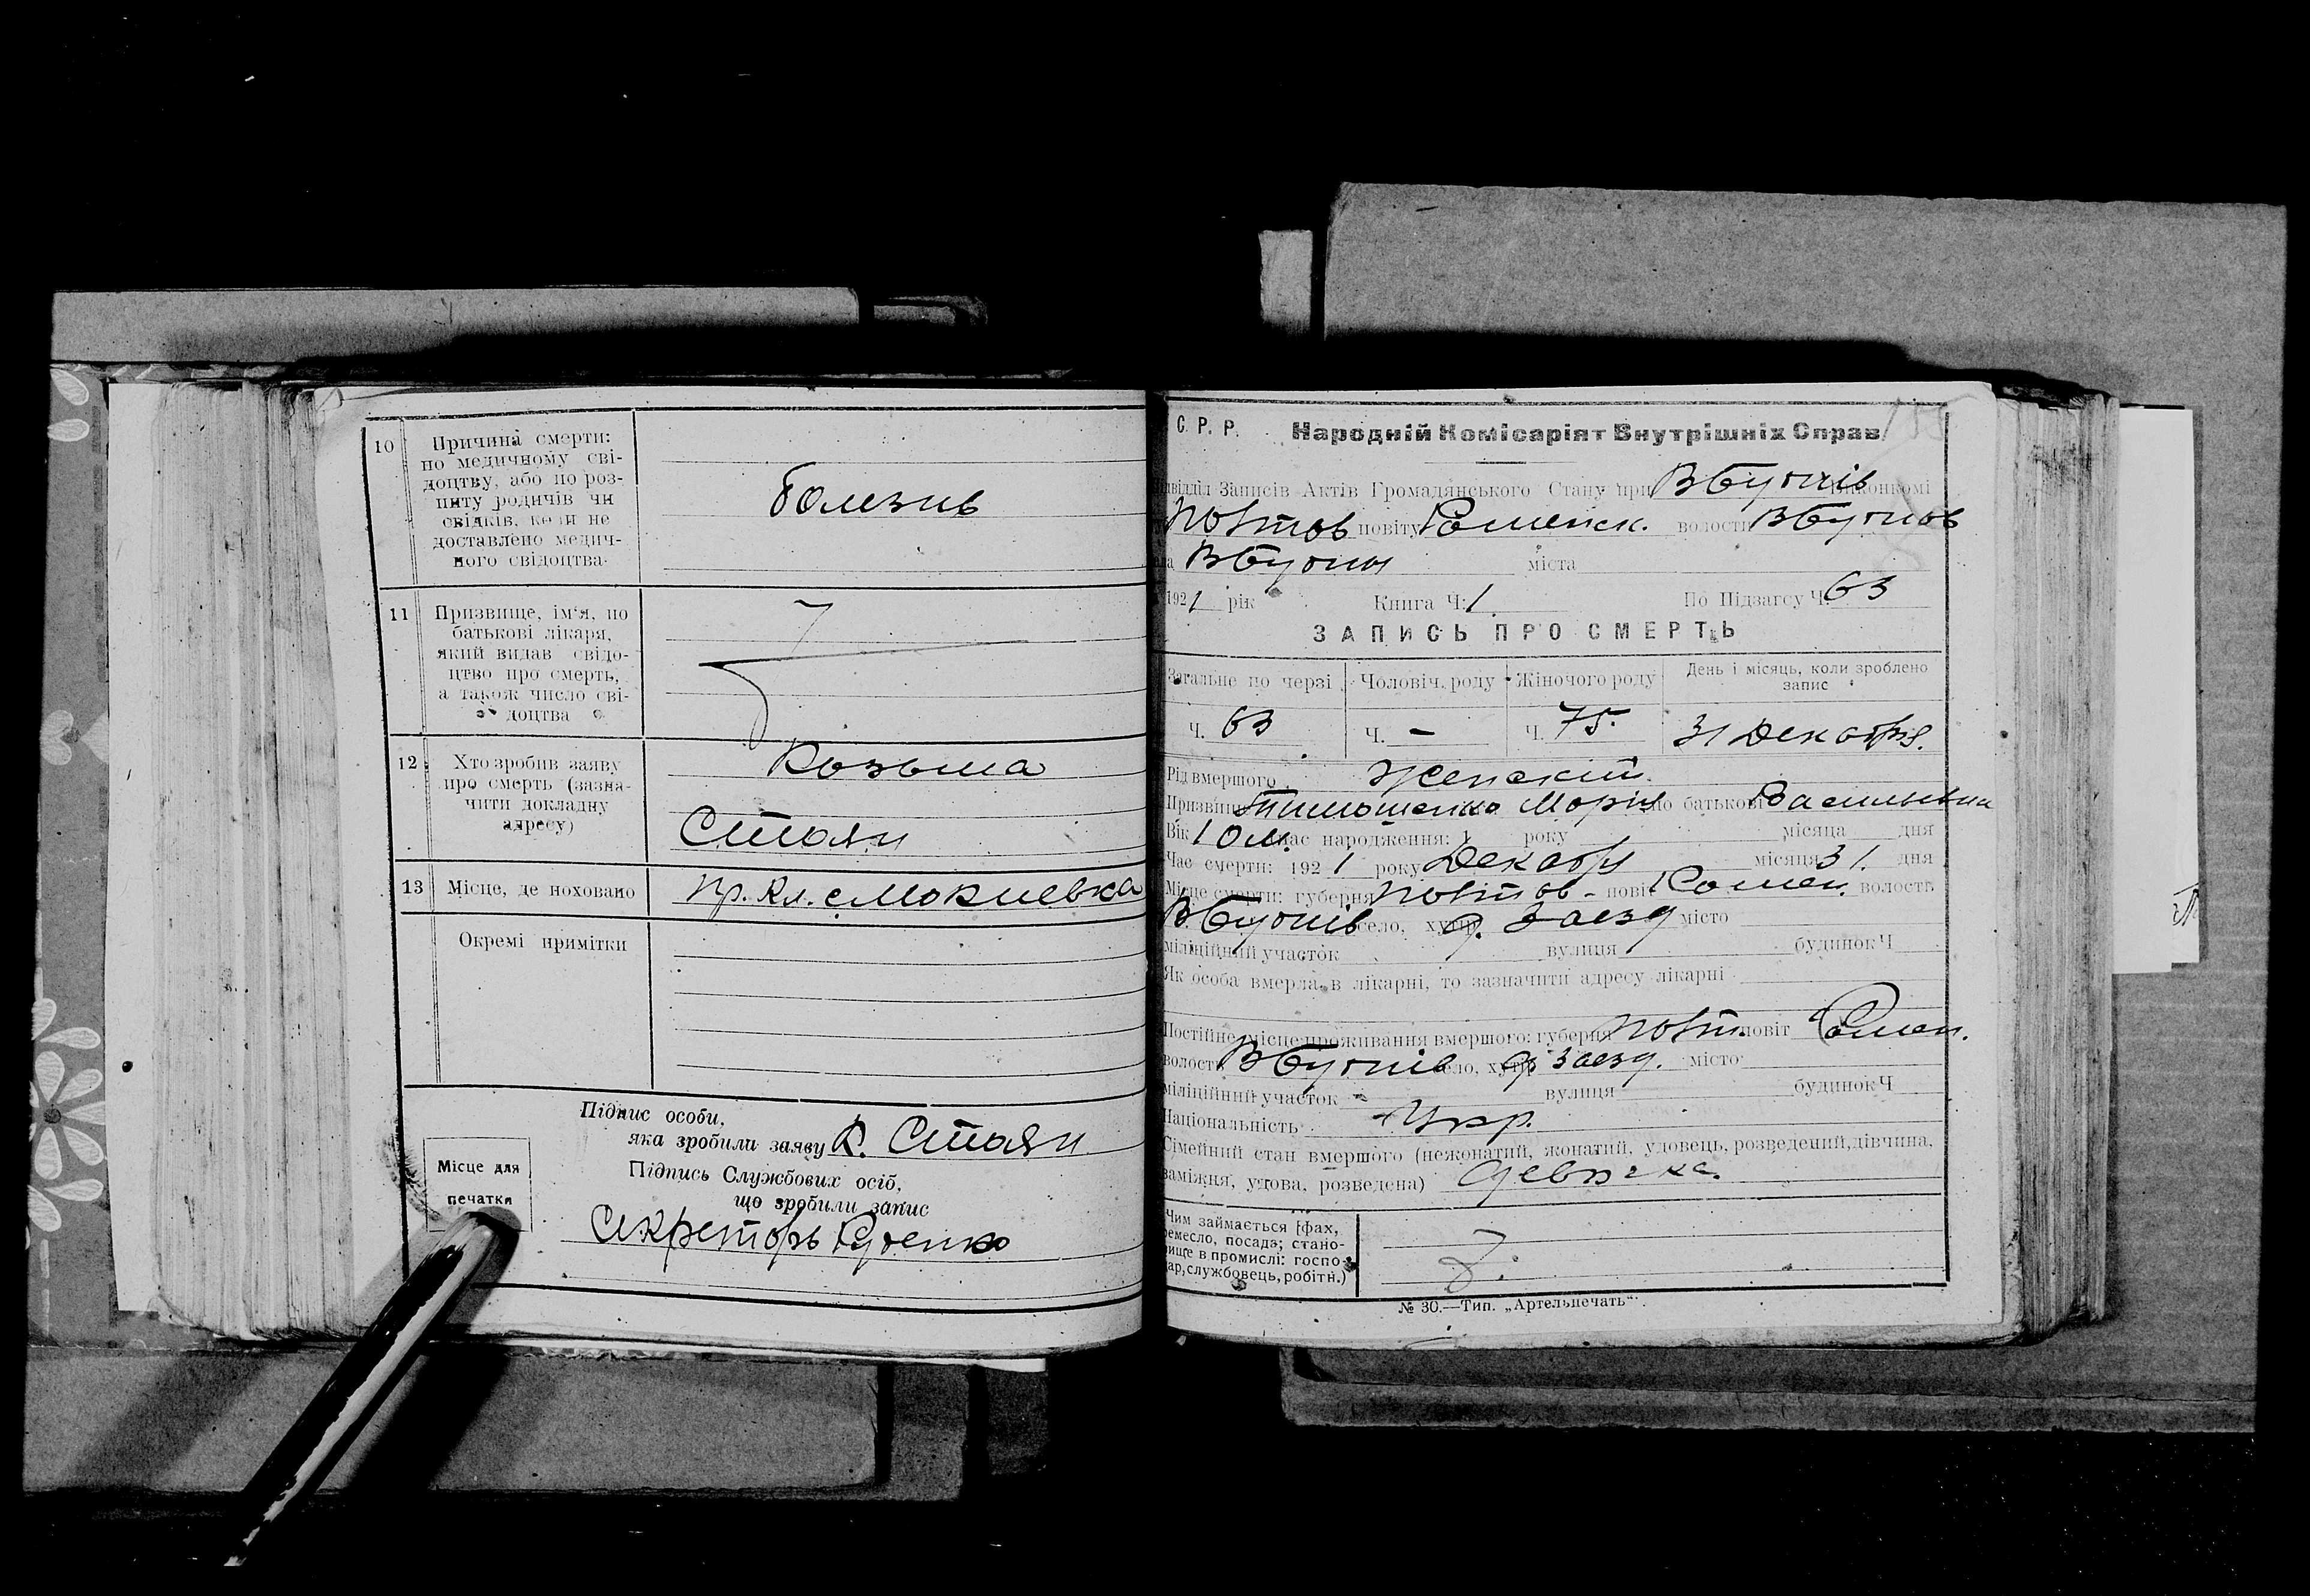 10 Причина смерти:
по медичному сві-
доцтву, або по роз-
питу родичів чи
свідків, коли не
доставлено медич-
ного свідоцтва.
болезнь
11 Призвище, ім'я, по
батькові лікаря,
який видав свідо-
цтво про смерть,
а також число сві-
доцтва
12 Хто зробив заяву
про смерть (зазна-
чити докладну
адресу)
Козьма
Стоян
13 Місце, де поховано
пр. кл. с Мокиевка
Окремі примітки
Підпис особи,
яка зробили заяву К. Стоян
Підпись Службових осіб,
що зробили запис
Місце для
печатки
Секреторь
С. Р. Р. Народній Комісаріят Внутрішніх Справ
Записів Актів Громадянського Стану при
Полтов повіту Роменск. волости
міста
1921 рік Книга Ч. 1 По Підзагсу Ч. 63
ЗАПИСЬ ПРО СМЕРТЬ
Загальне по черзі Чоловіч. роду Жіночого роду День і місяць, коли зроблено
запис
Ч. 63 Ч. - Ч. 75. 31 Декабря.
Рід вмершого Женскій.
Призвище Тимошенко Марія по батькові Васильевна
Вік 10 м. Час народження: 1 року місяца дня
Час смерти: 1921 року Декабр місяця 31. дня
Місце смерти: губерня Полтов - повіт Ромен. волости
село, хутір д. Заезд місто
міліційний участок вулиця будинок Ч
Як особа вмерла в лікарні, то зазначити адресу лікарні
Постійне місце проживання вмершого: губерня Полт. повіт Ромен.
волость село, хутір д Заезд. місто
міліційний участок - вулиця будинок Ч
Національність Укр.
Сімейний стан вмершого (нежонатий, жонатий, удовець, розведений, дівчина,
заміжня, удова, розведена) девочка.
Чим займається (фах,
ремесло, посада; стано-
вище в промислі: госпо-
дар, службовець, робітн.)
№ 30.—Тип. „Артельпечать“.